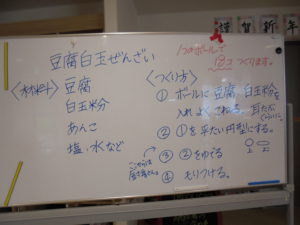 謹賀新年
豆腐白玉ぜんざい
1つのボールで
18コ つくります。
〈材料〉
豆腐
白玉粉
あんこ
塩・水など
〈つくり方〉
① ボールに豆腐 白玉粉を
入れ よくこねる。耳たぶ
くらいに。
② ①を平たい円型にする。
③ ②をゆでる
④ もりつける。